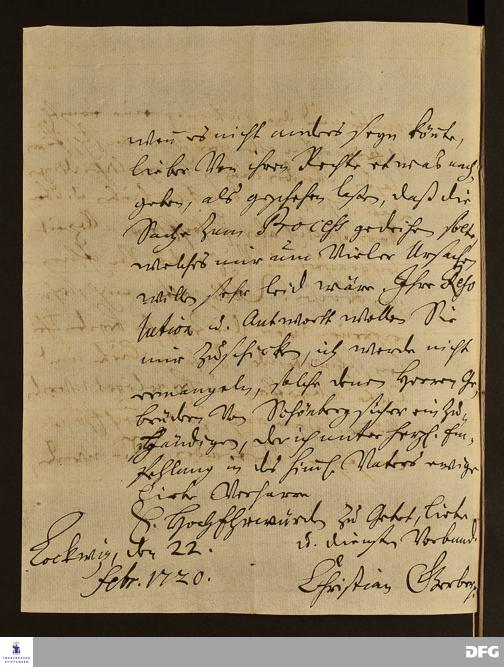 wenn es nicht anders seyn könte,
lieber von ihren Rechte etwas nach
geben, als geschehen laßen, daß die
Sache zum Process gedeihen solte
welches mir um vieler Ursachen
willen sehr leid wäre. Ihre Reso
lution u. Antwortt wollen Sie
mir zuschicken, ich werde nicht
ermangeln, solche denen Herren Ge
brüdern von Schönberg sicher einzu
händigen, der ich unter herzl. Em
pfehlung in des himml. Vaters ewige
Liebe verharre
E. HochEhrwürden zu Gebet, Liebe
u. Diensten Verbund.
Lockwiz, den 22.
Febr. 1720.
Christian Gerber.
FRANCKESCHE STIFTUNGEN
DFG